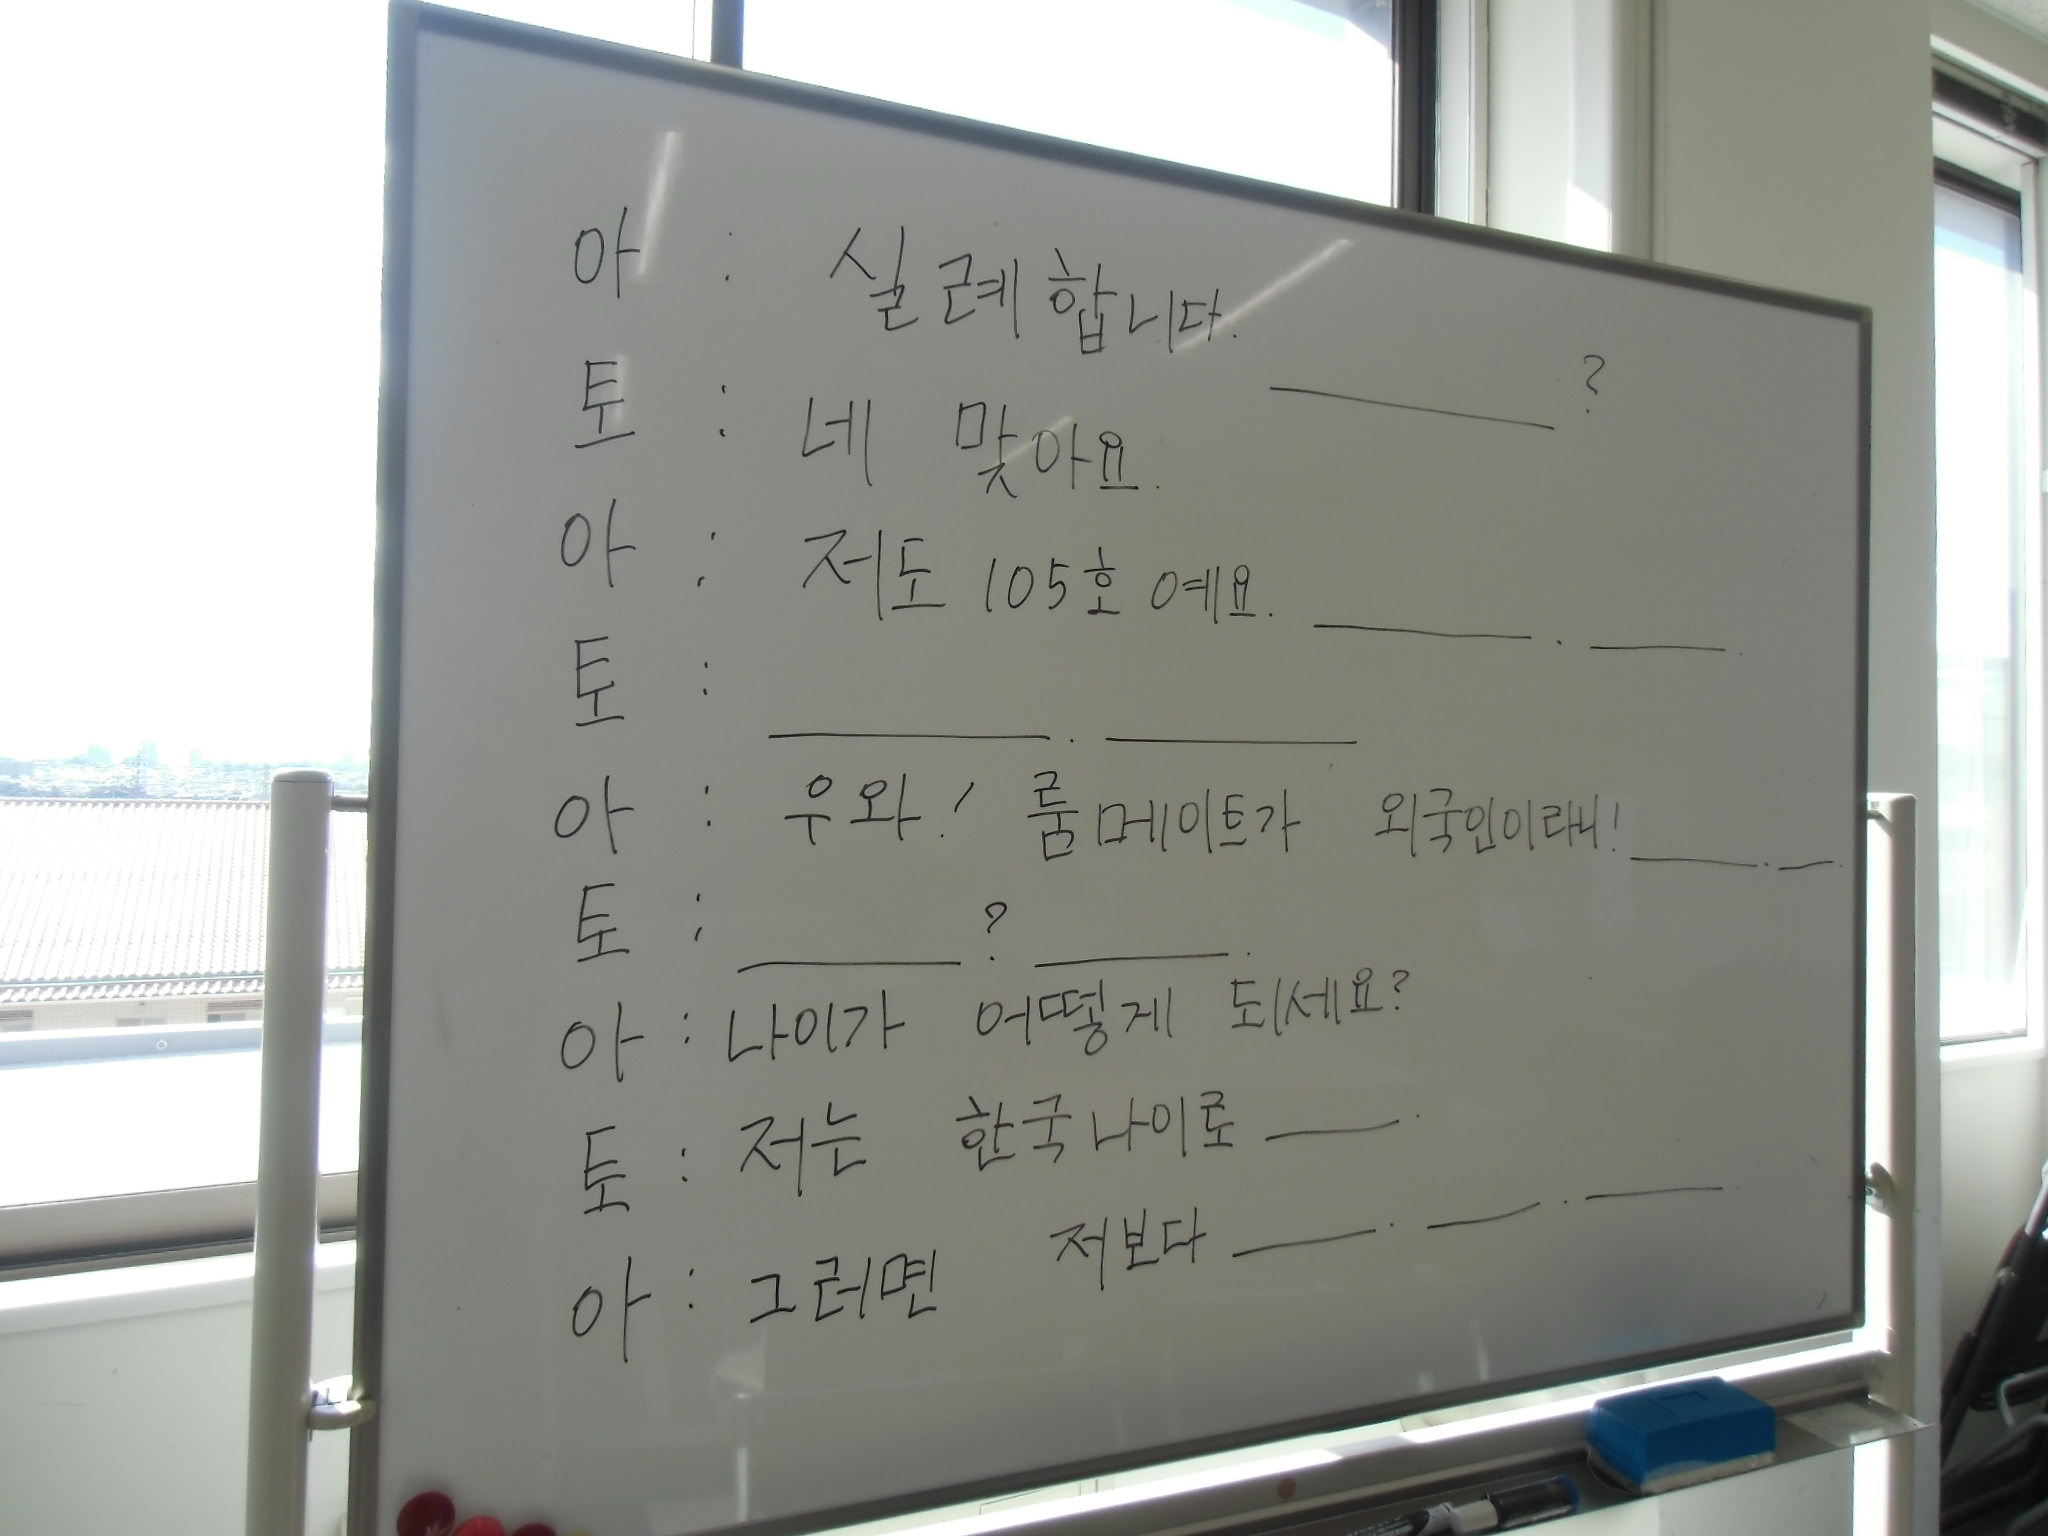 아 : 실례합니다. ______ ?
토 : 네 맞아요.
아 : 저도 105호예요. ______ . ______ .
토 : ______ . ______
아 : 우와! 룸메이트가 외국인이라니! ______ . ____ .
토 : ______ ? ______ .
아 : 나이가 어떻게 되세요?
토 : 저는 한국나이로 ______ .
아 : 그러면 저보다 ______ . ______ . ______ .